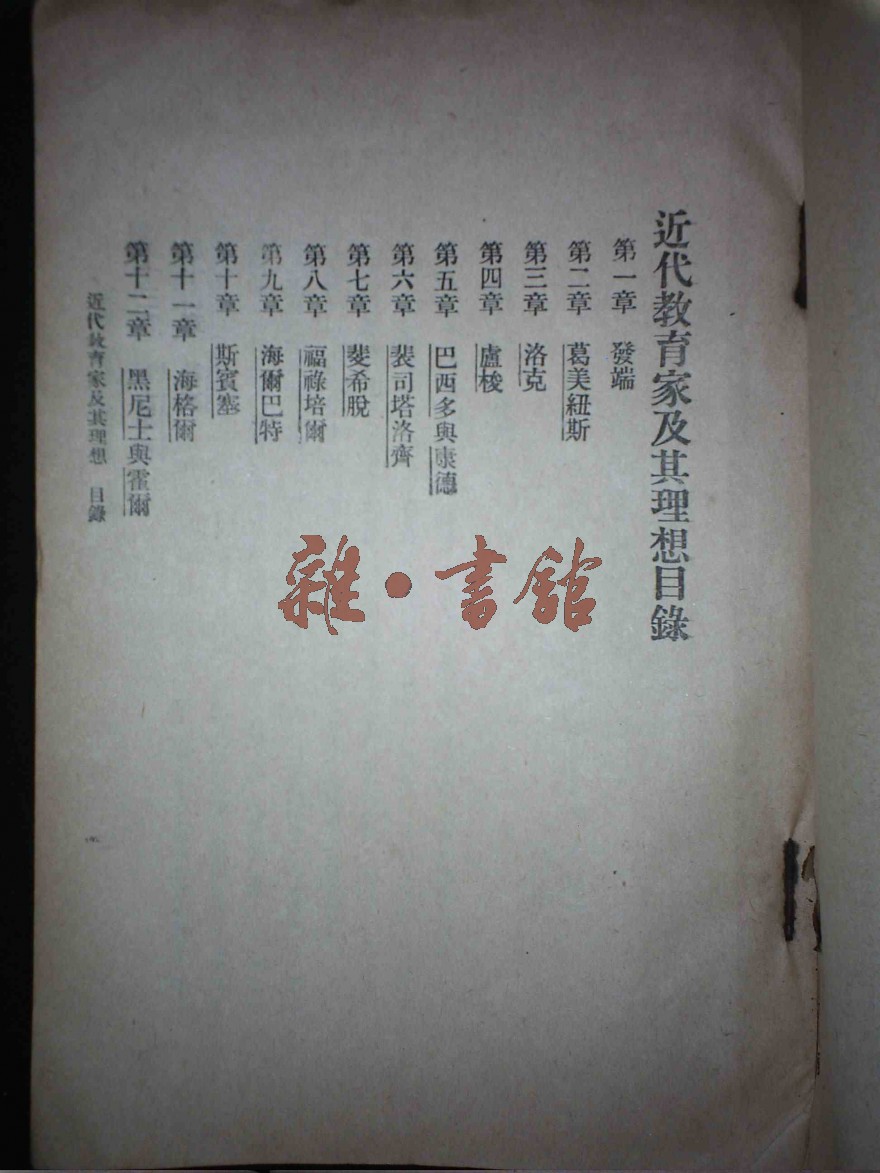 近代教育家及其理想目錄
第一章 發端
第二章 葛美紐斯
第三章 洛克
第四章 盧梭
第五章 巴西多與康德
第六章 裴司塔洛齊
第七章 斐希脫
第八章 福祿培爾
第九章 海爾巴特
第十章 斯賓塞
第十一章 海格爾
第十二章 黑尼士與霍爾
近代敎育家及其理想 目錄
雜·書館